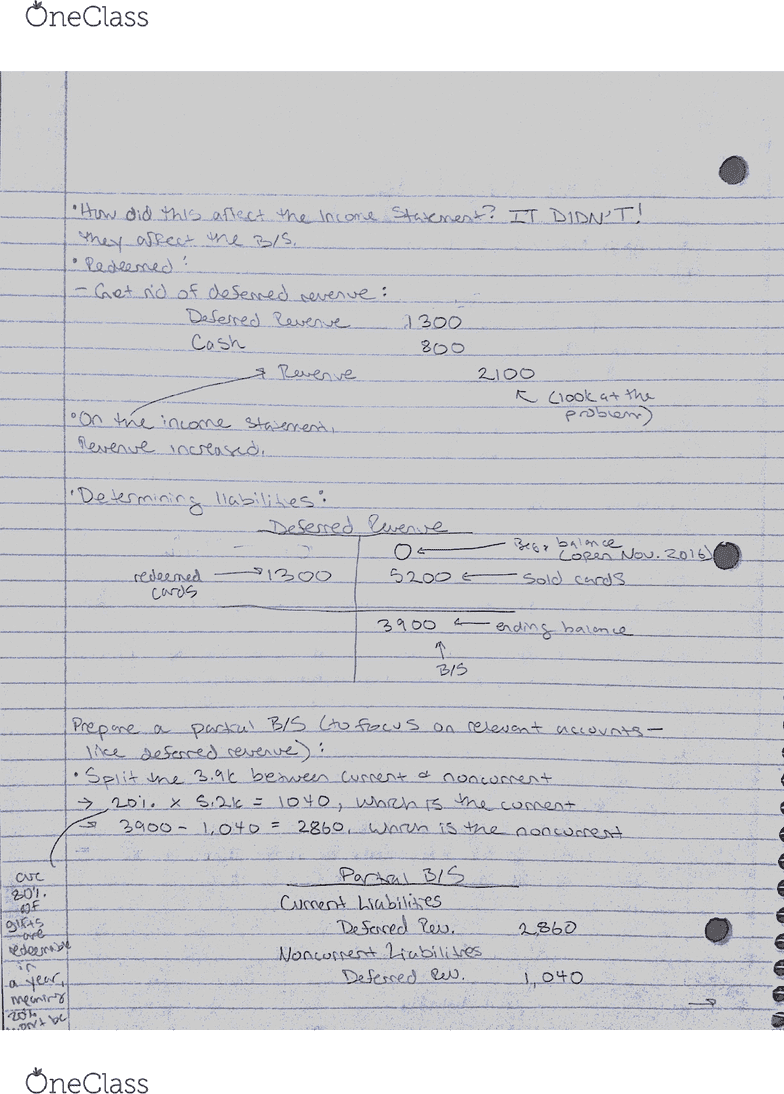 OneClass
• How did this affect the Income Statement? IT DIDN'T!
they affect the B/S.
• Redeemed:
- Get rid of deferred revenue:
Deferred Revenue 1300
Cash 800
Revenue 2100
(look at the
problem)
• On the income statement,
Revenue increased.
• Determining liabilities:
Deferred Revenue
0 ← Beg. balance
(open Nov. 2016)
redeemed → 1300 5200 ← sold cards
cards
3900 ← ending balance
↑
B/S
Prepare a partial B/S (to focus on relevant accounts—
like deferred revenue):
• Split the 3.9k between current & noncurrent
→ 20% × 5.2k = 1040, which is the current
→ 3900 - 1,040 = 2860, which is the noncurrent
cuz
80%
of
gifts
are
redeemable
in
a year,
meaning
20%
won't be
Partial B/S
Current Liabilities
Deferred Rev. 2,860
Noncurrent Liabilities
Deferred Rev. 1,040
→
OneClass